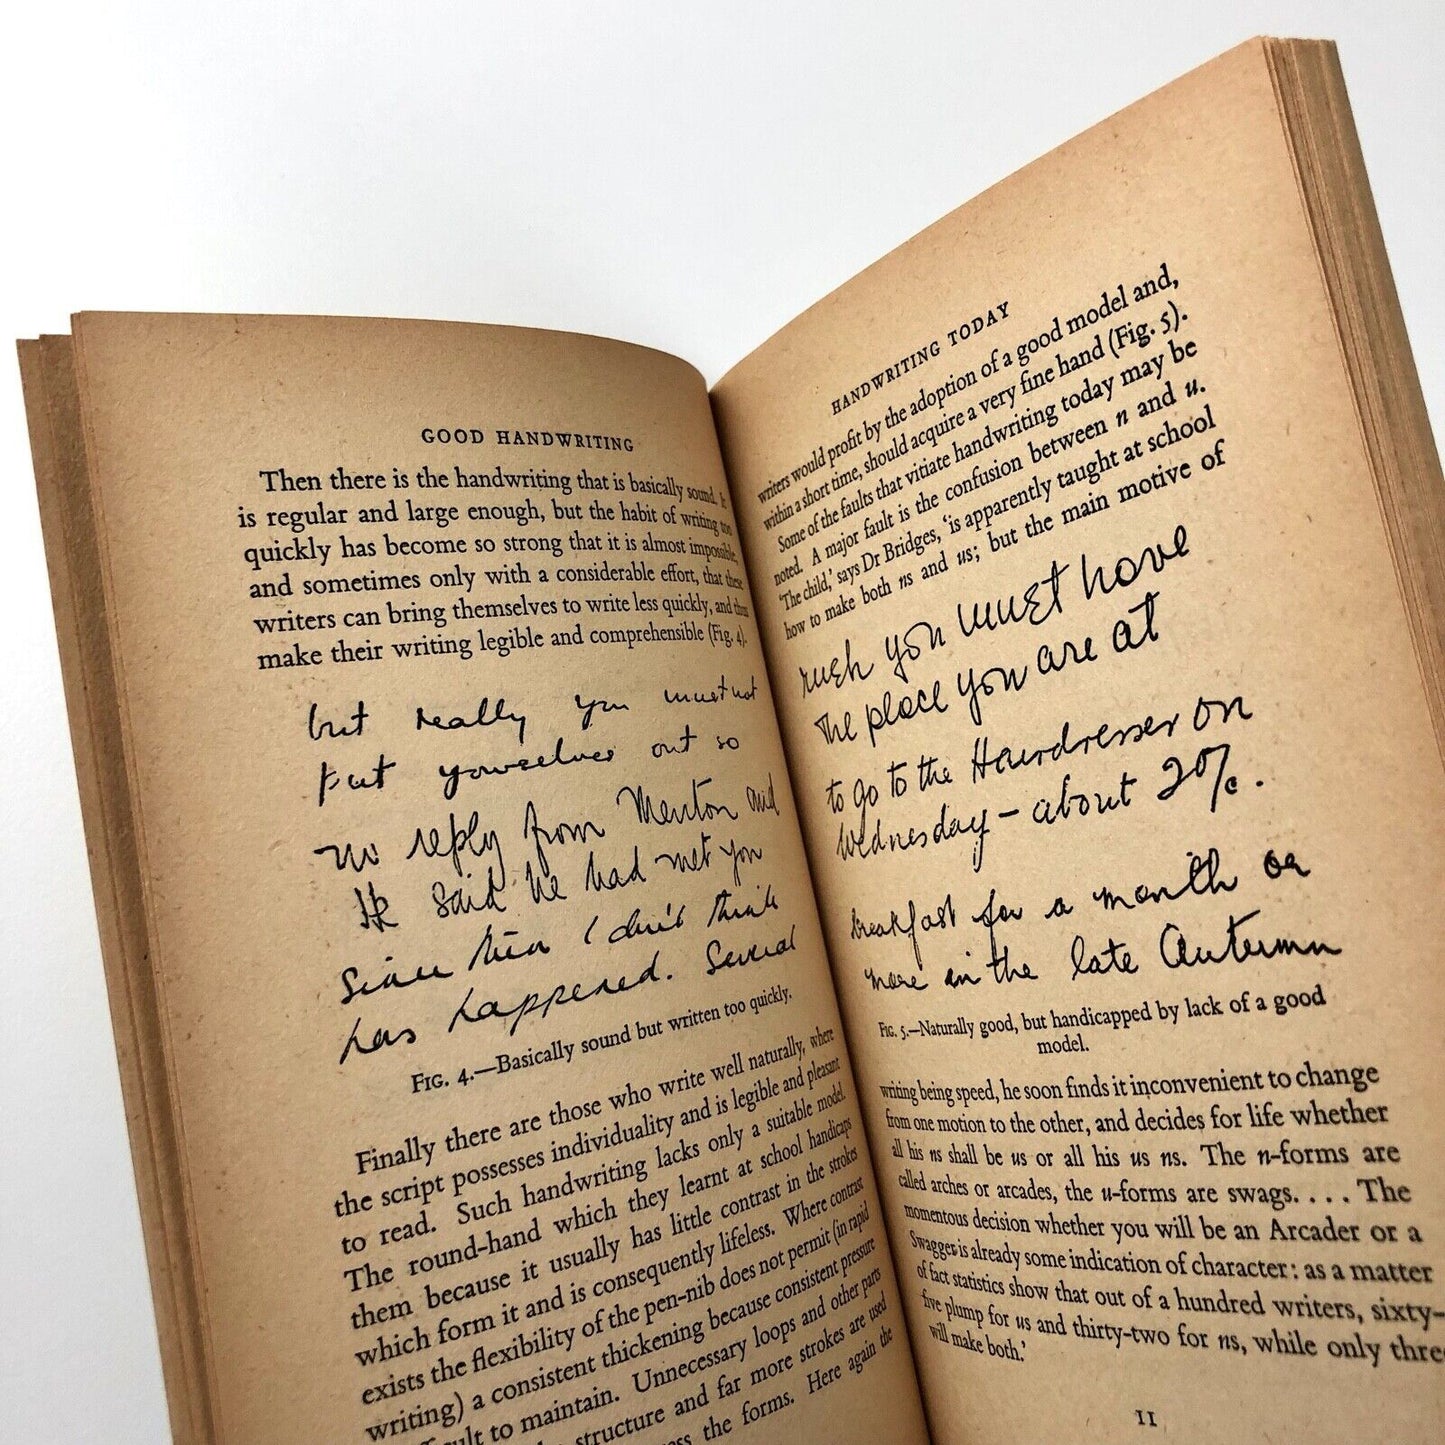 GOOD HANDWRITING
Then there is the handwriting that is basically sound. It
is regular and large enough, but the habit of writing too
quickly has become so strong that it is almost impossible,
and sometimes only with a considerable effort, that these
writers can bring themselves to write less quickly, and thus
make their writing legible and comprehensible (Fig. 4).
but really you must not
put yourselves out so
no reply from Menton and
He said he had met you
Since then I don't think
has happened. Several
FIG. 4.—Basically sound but written too quickly.
Finally there are those who write well naturally, where
the script possesses individuality and is legible and pleasant
to read. Such handwriting lacks only a suitable model.
The round-hand which they learnt at school handicaps
them because it usually has little contrast in the strokes
which form it and is consequently lifeless. Where contrast
exists the flexibility of the pen-nib does not permit (in rapid
writing) a consistent thickening because consistent pressure
to maintain. Unnecessary loops and other parts
structure and far more strokes are used
the forms. Here again the
HANDWRITING TODAY
writers would profit by the adoption of a good model and,
within a short time, should acquire a very fine hand (Fig. 5).
Some of the faults that vitiate handwriting today may be
noted. A major fault is the confusion between n and u.
'The child,' says Dr Bridges, 'is apparently taught at school
how to make both ns and us; but the main motive of
you must have
the place you are at
to go to the Hairdresser on
Wednesday – about 20/-.
breakfast for a month or
more in the late Autumn
FIG. 5.—Naturally good, but handicapped by lack of a good
model.
writing being speed, he soon finds it inconvenient to change
from one motion to the other, and decides for life whether
all his ns shall be us or all his us ns. The n-forms are
called arches or arcades, the u-forms are swags. . . . The
momentous decision whether you will be an Arcader or a
Swagger is already some indication of character: as a matter
of fact statistics show that out of a hundred writers, sixty-
five plump for us and thirty-two for ns, while only three
will make both.'
11